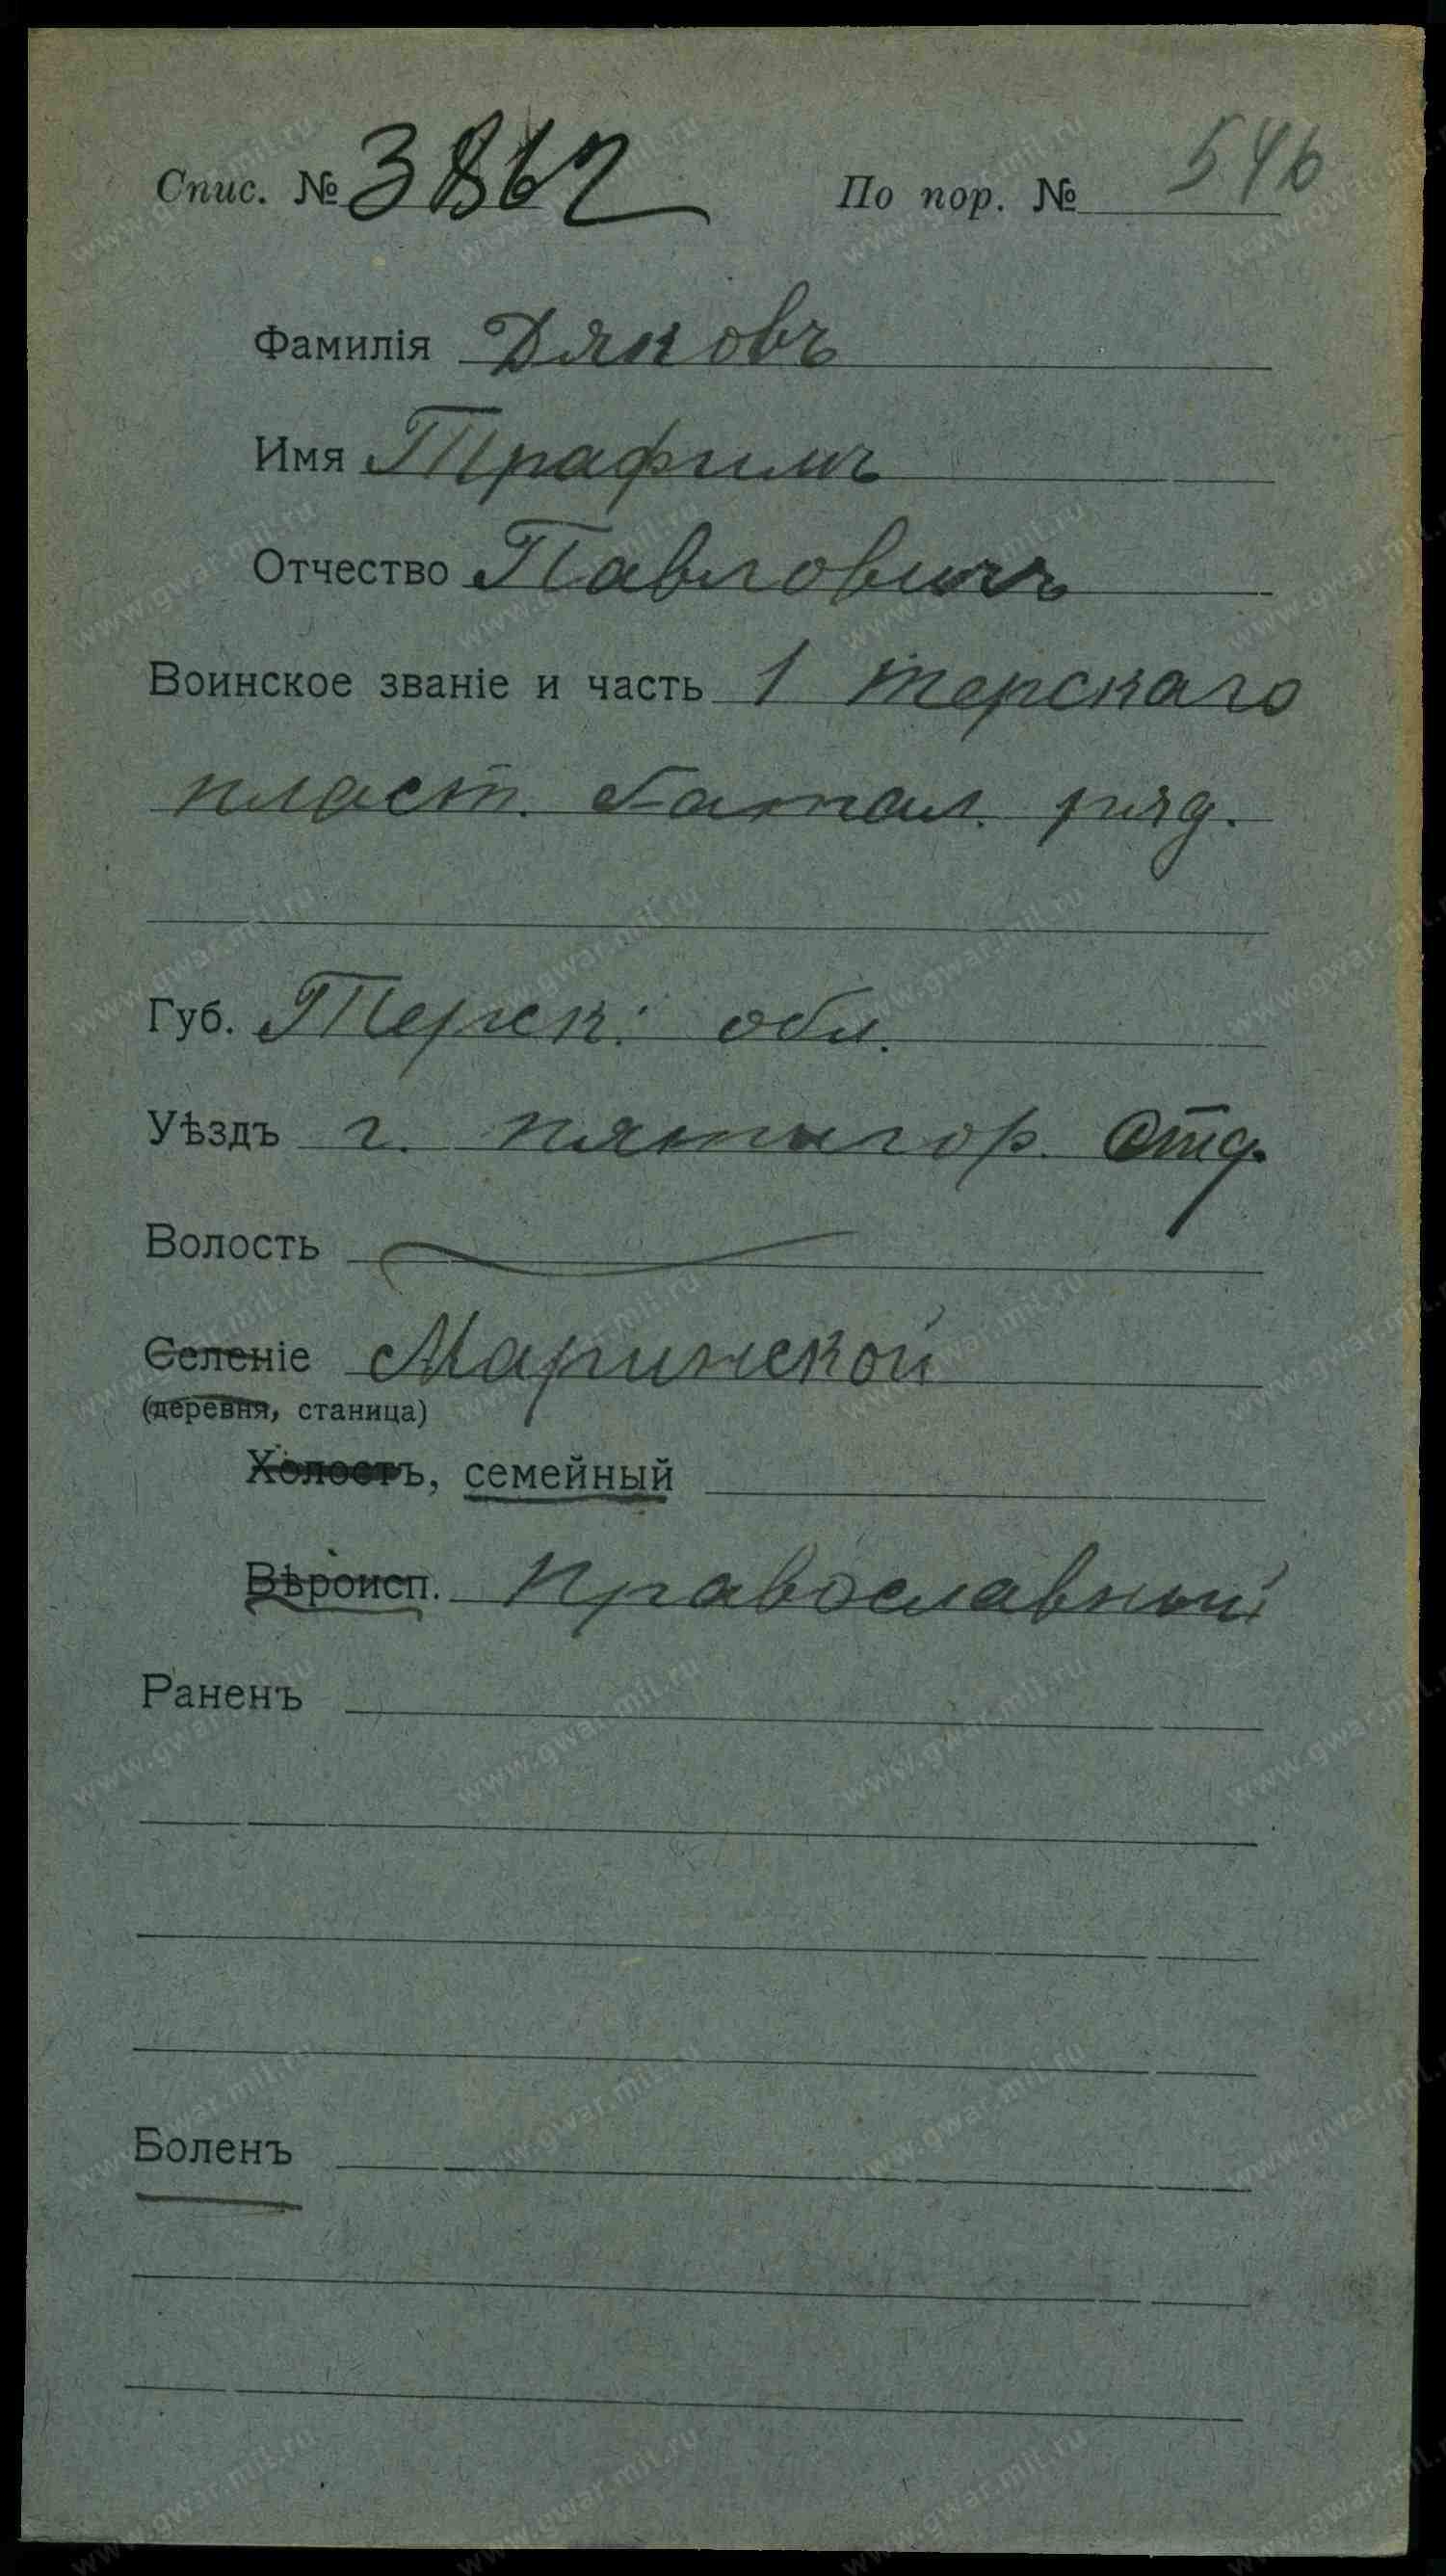 Спис. № 3862 По пор. № 546
Фамилія Дяковъ
Имя Трафимъ
Отчество Павловичъ
Воинское званіе и часть 1 терскаго
пласт. батал. ряд.
Губ. Терск. обл.
Уѣздъ г. пятигор. Отд.
Волость
Селеніе Маринской
(деревня, станица)
Холостъ, семейный
Вѣроисп. Православный
Раненъ
Боленъ